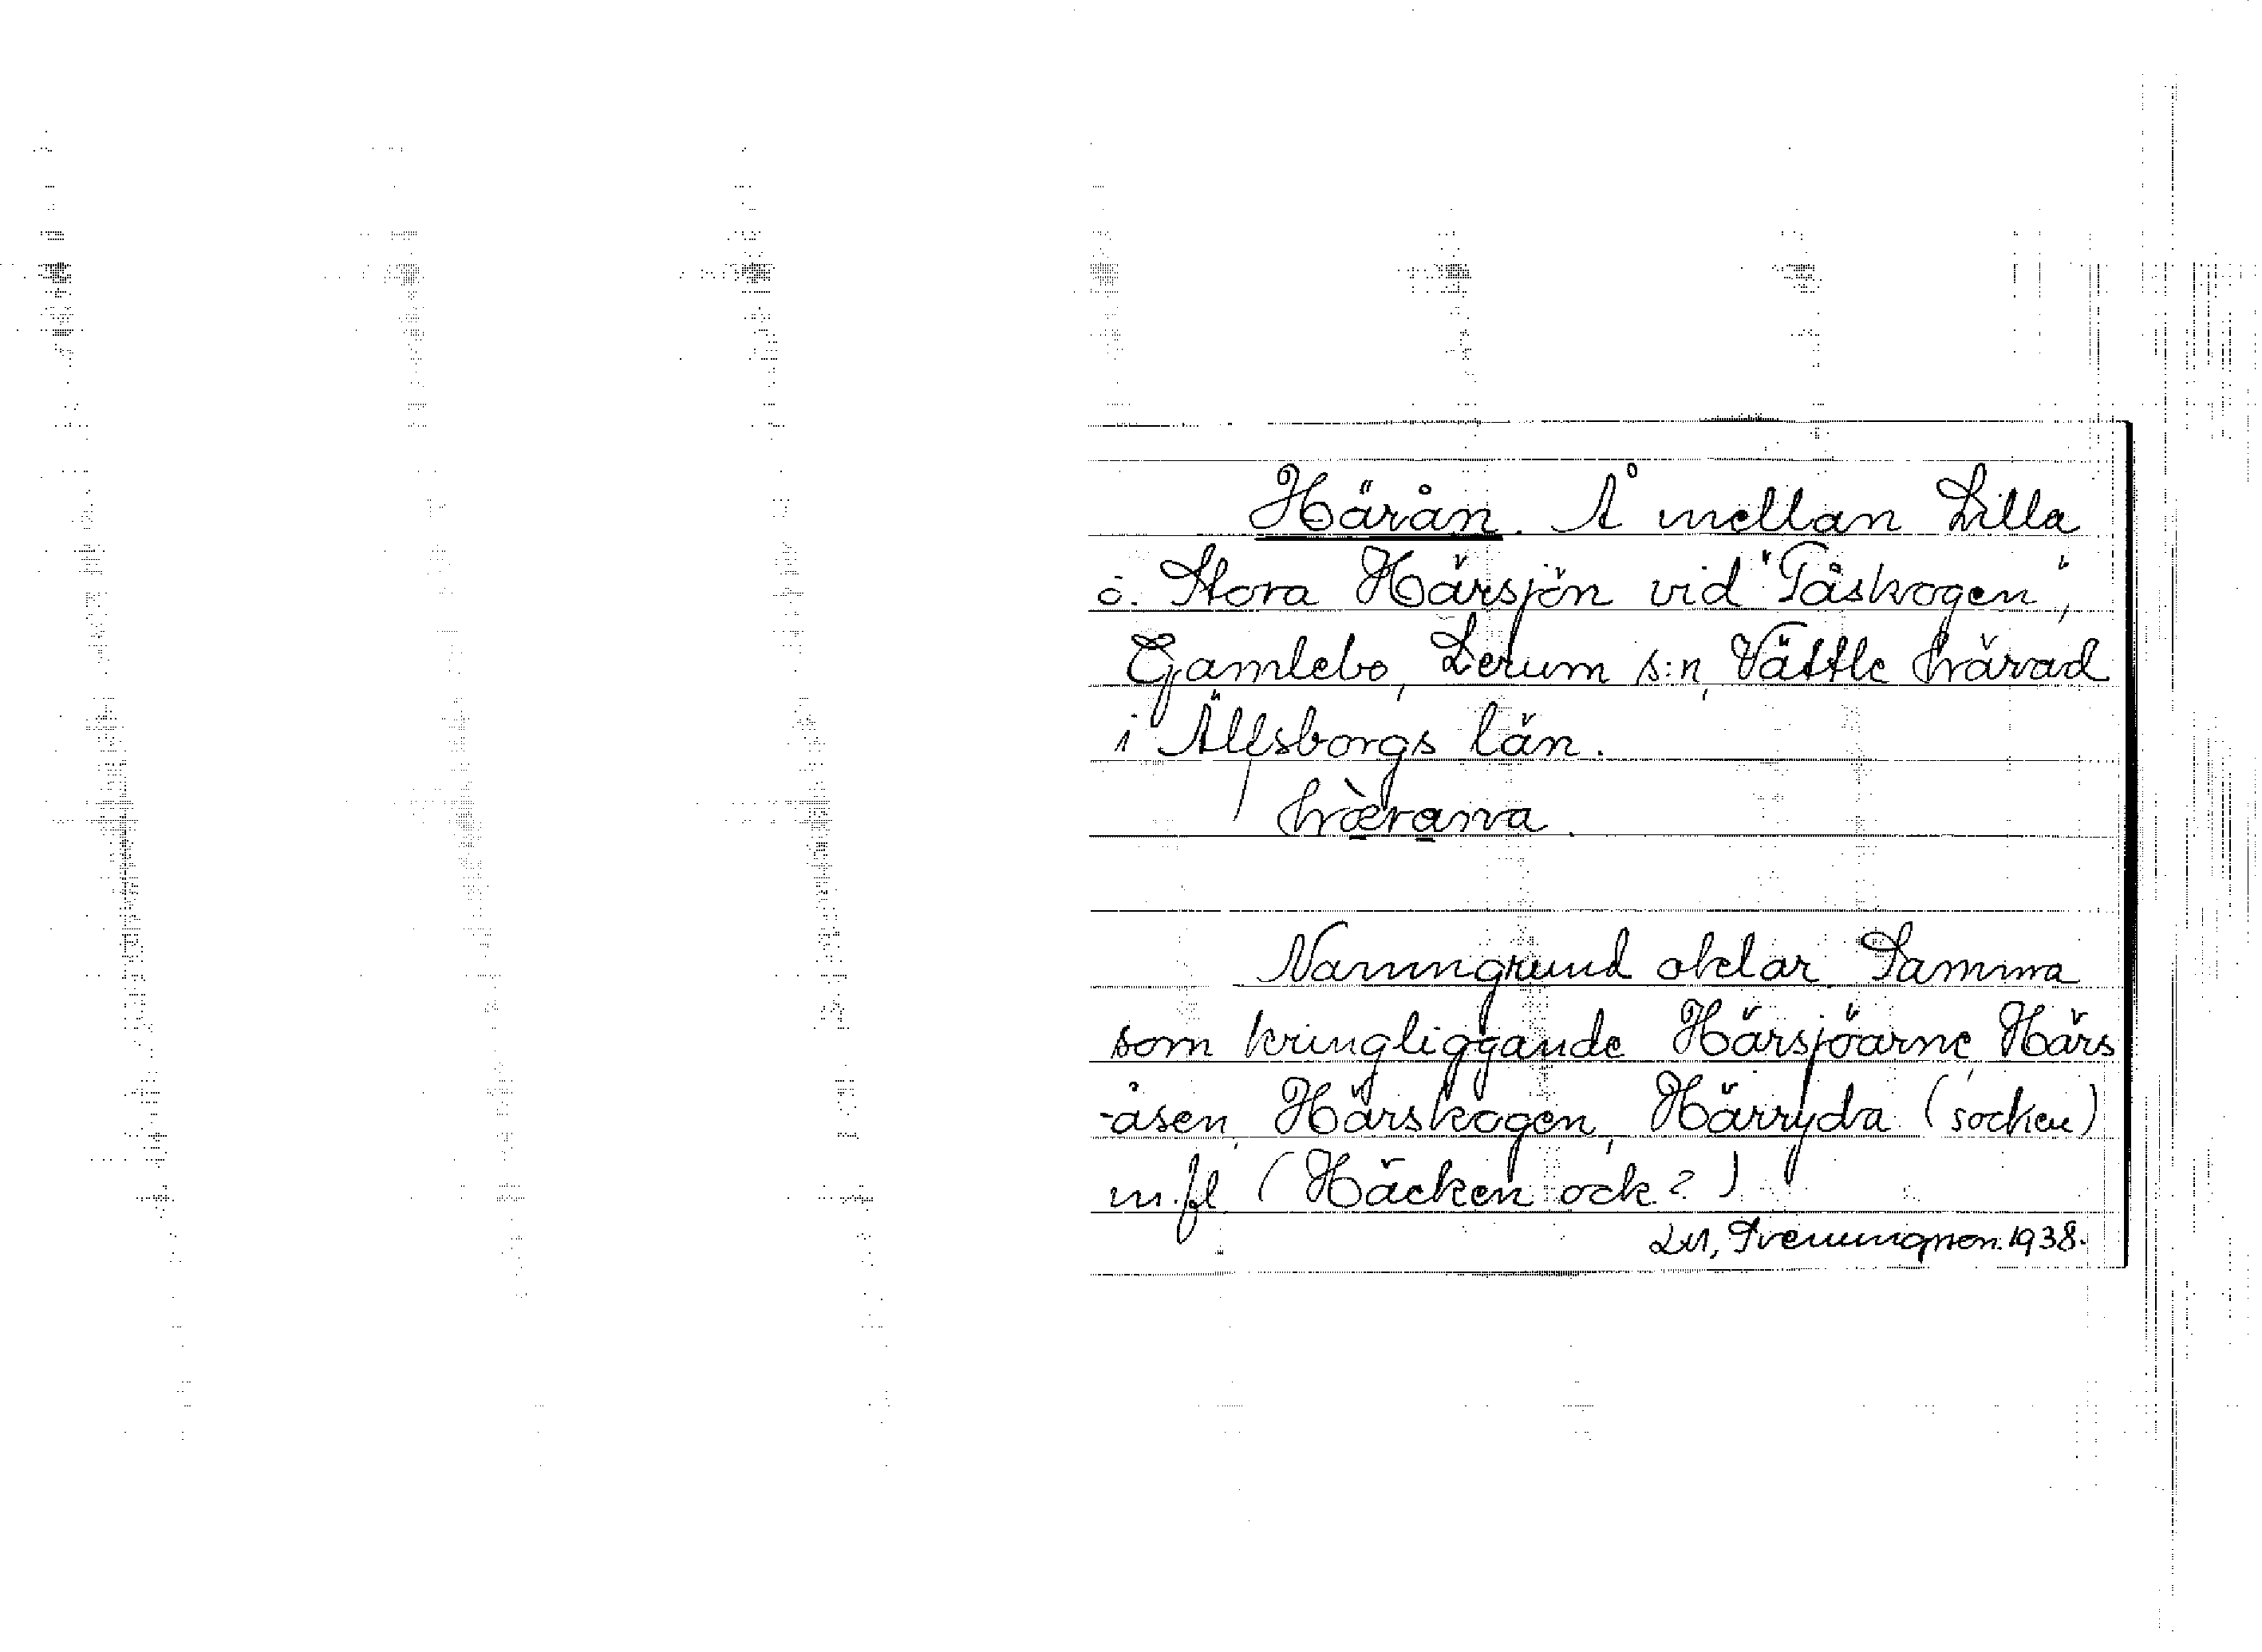 Härån. Å mellan Lilla
o. Stora Härsjön vid "Tåskogen",
Gamlebo, Lerum s:n, Vättle härad
i Älfsborgs län.
hæ̀rana.
Namngrund oklar. Samma
som kringliggande Härsjöarne, Härs
-åsen, Härskogen, Härryda (socken)
m.fl. (Häcken ock?)
1938.